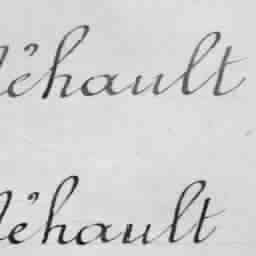 léhault
léhault